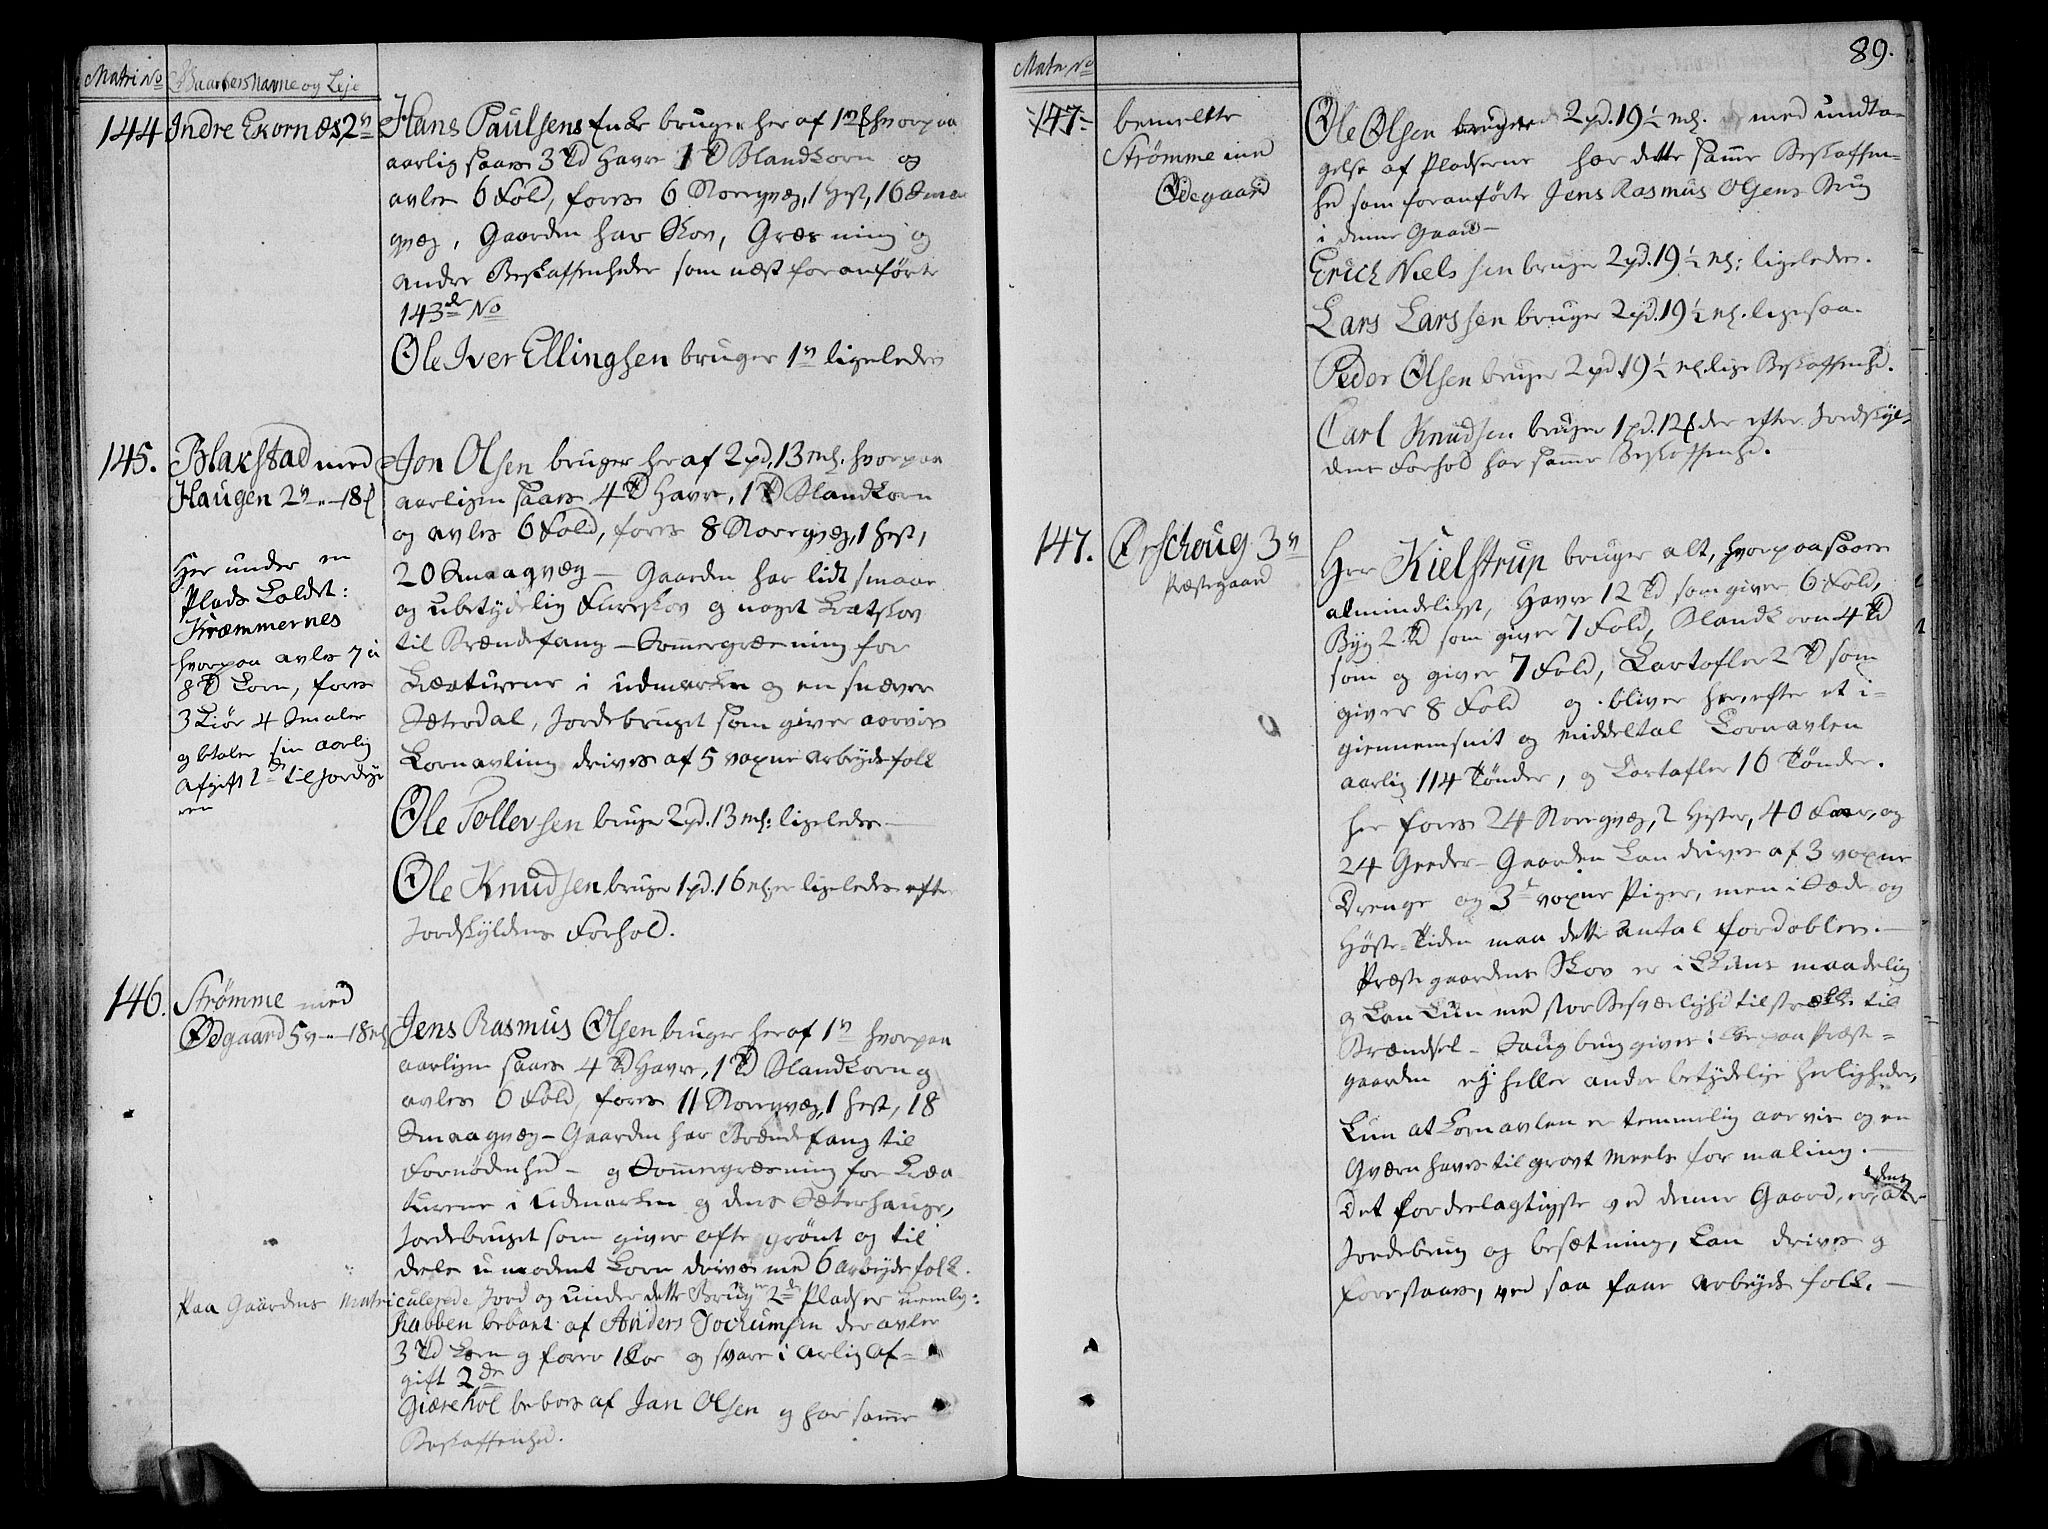 Matri No Gaardens Navne og Leje
144 Indre Ekornæs 2 v
Hans Paulsens Enke bruger her af 1 v hvorpaa
aarlig saaes 3 Td Havre 1 Td Blandkorn og
avles 6 Fold, fores 6 Storeqvæg, 1 Hest, 16 Smaa
qvæg, Gaarden har Skov, Græsning og
andre Beskaffenheder som næst foranførte
143de No
Ole Iver Ellingsen bruger 1 v ligeledes
145. Blakstad med
Haugen 2 v „ 18
Her under en
Plads Kaldet:
Kræmmernes
hvorpaa avles 7 à
8 Td Korn, fores
3 Kiør 4 Smaler
og betaler sin aarlig
Afgift til Jordeje
ren
Jon Olsen bruger her af 2 pd. 13 mk. hvorpaa
aarligen saaes 4 Td Havre, 1 Td Blandkorn
og avles 6 Fold, fores 8 Storeqvæg, 1 Hest,
20 Smaaqvæg – Gaarden har lidt smaae
og ubetydelig Fureskov og noget Kratskov
til Brændefang – Sommergræsning for
Kreaturene i udmarken og en snæver
Sæterdal, Jordebruget som giver aarvis
Kornavling drives af 5 voxne arbeydsfolk
Ole Tollevsen bruger 2 pd. 13 mk: ligeledes –
Ole Knudsen bruger 1 pd. 16 mk er ligeledes efter
Jordskyldens Forhold.
146. Strømme med
Ødgaard 5 v „ 18 mk
Jens Rasmus Olsen bruger her af 1 v hvorpaa
aarligen saaes 4 Td Havre, 1 Td Blandkorn og
avles 6 Fold, fores 11 Storeqvæg, 1 Hest, 18
Smaaqvæg – Gaarden har Brændefang til
Fornødenhed – og Sommergræsning for Krea
turene i Udmarken og dens Sæterhauge,
Jordebruget som giver ofte grønt og til
dels umodent Korn drives med 6 arbeydsfolk.
Paa Gaardens Matriculerede Jord og under dette Brug er 2de Pladser nemlig:
Rabben beboet af Anders Jochumsen der avler
3 Td Korn og forer 1 Koe og svare i aarlig Af-
gift 2 dr
Giærehol beboes af Jan Olsen og har samme
Beskaffenhed.
89.
Matr No
147. bemeldte
Strømme med
Ødegaard
Ole Olsen bruger 2 pd. 19 ½ mk. med undta-
gelse af Pladserne har dette samme Beskaffen-
hed som foranførte Jens Rasmus Olsens Brug
i denne Gaard –
Erich Nielssen bruger 2 pd. 19 ½ mk: ligeledes.
Lars Larssen bruger 2 pd. 19 ½ mk. ligesaa.
Peder Olsen bruger 2 pd. 19 ½ mk. lige Beskaffenhed.
Carl Knudsen bruger 1 pd. 12 der efter Jordskyl-
dens Forhold har samme Beskaffenhed.
147. Ørschoug 3 v
Præstegaard
Herr Kielstrup bruger alt, hvorpaa saaes
almindeligst, Havre 12 Td som giver 6 Fold,
Byg 2 Td som giver 7 Fold, Blandkorn 4 Td
som og giver 7 Fold, Kartofler 2 Td som
giver 8 Fold og bliver herefter et i-
giennemsnit og Middeltal Kornavlen
aarlig 114 Tønder, og Kartofler 16 Tønder.
her fores 24 Storeqvæg, 2 Hester, 40 Faar, og
24 Geeder – Gaarden kan drives af 3 voxne
Drenge og 3de voxne Piger, men i Sæde og
Høste-Tiden maa dette antal fordobles. –
Præstegaardens Skov er i maadelig
og kan kun med stor Besværlighed tilstrække til
Brændsel – Saugbrug gives ikke paa Præste-
gaarden ej heller andre betydelige Herligheder,
kun at Kornavlen er temmelig aarvis og en
Qværn haves til grovt Meels formaling. –
Det fordeelagtigste ved denne Gaard, er, at dens
Jordebrug og besætning, kan drives og
forestaaes, ved saa faae arbeydsfolk. –